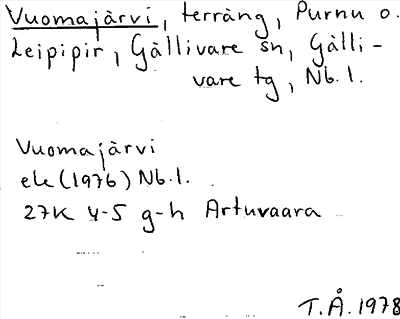 Vuomajärvi, terräng, Purnu o.
Leipipir, Gällivare sn, Gälli-
vare tg, Nb.l.
Vuomajärvi
ek (1976) Nb.l.
27K 4-5 g-h Artuvaara
T.Å. 1978